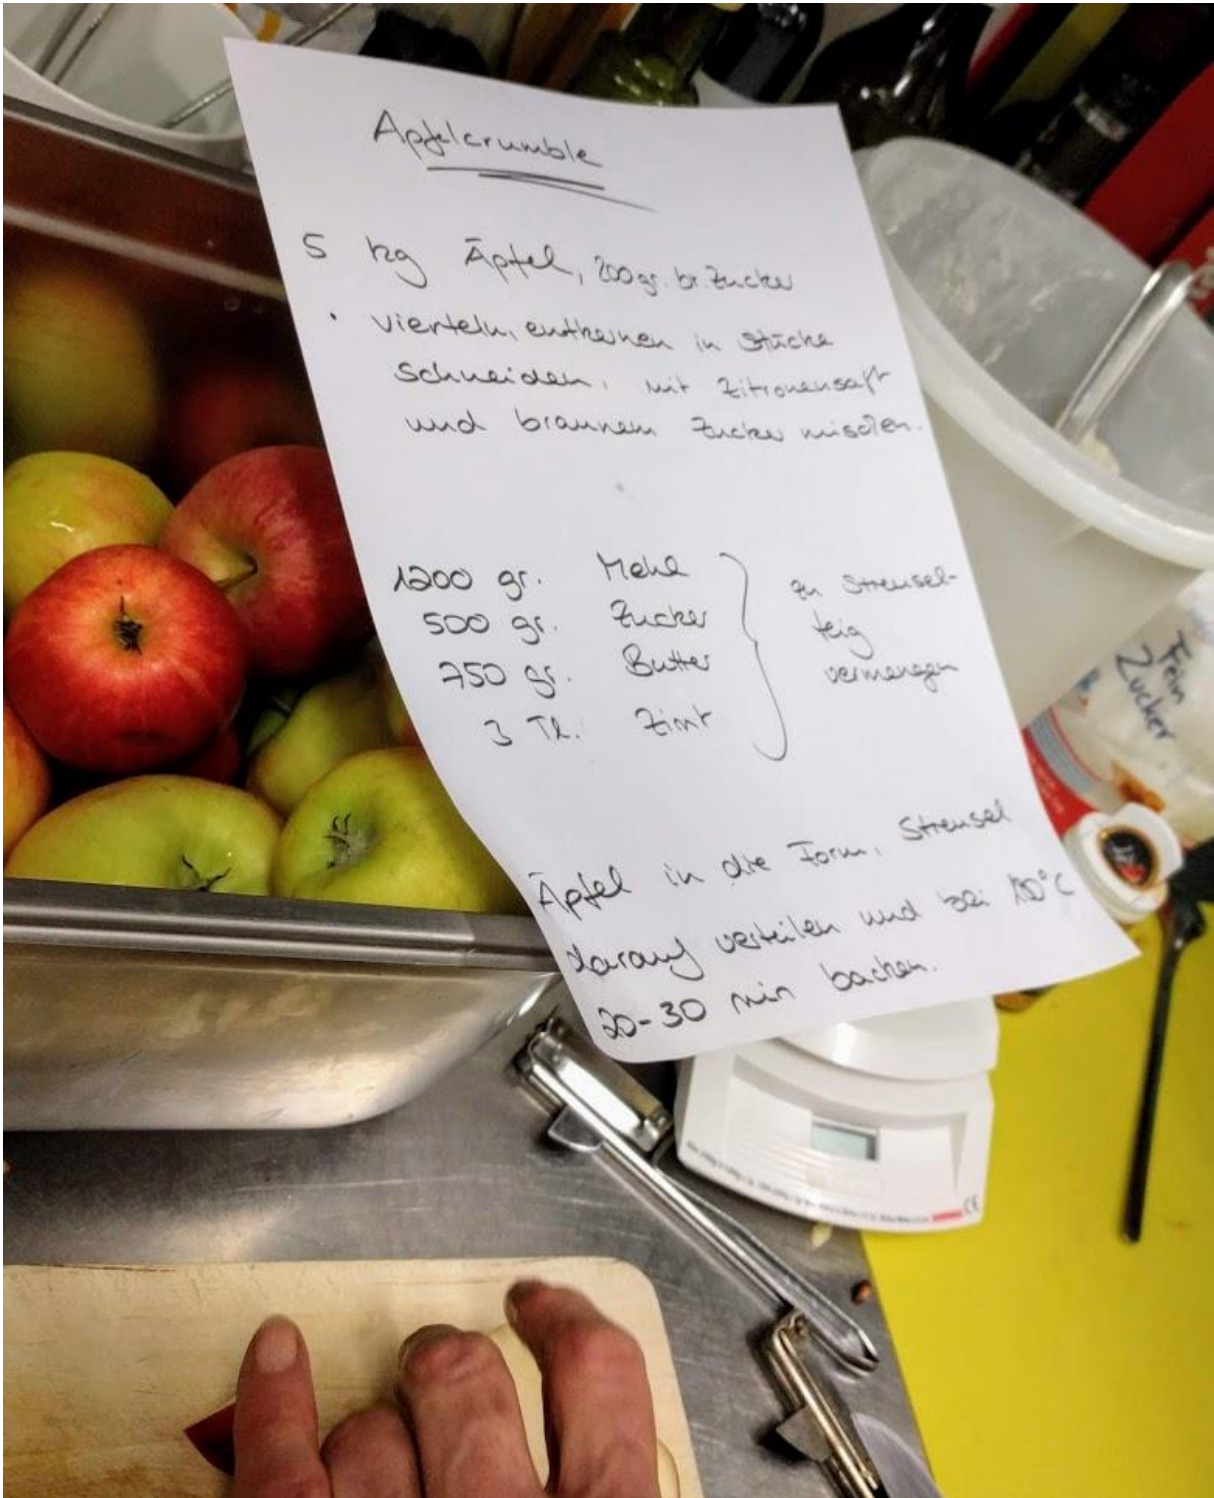 Apfelcrumble
5 kg Äpfel, 200 gr. br. Zucker
· vierteln, entkernen in Stücke
schneiden, mit Zitronensaft
und braunem Zucker mischen.
1200 gr. Mehl
500 gr. Zucker
750 gr. Butter
3 Tl. Zimt
zu Streusel-
teig
vermengen
Äpfel in die Form, Streusel
darauf verteilen und bei °C
20-30 min backen.
Fein
Zucker
CE